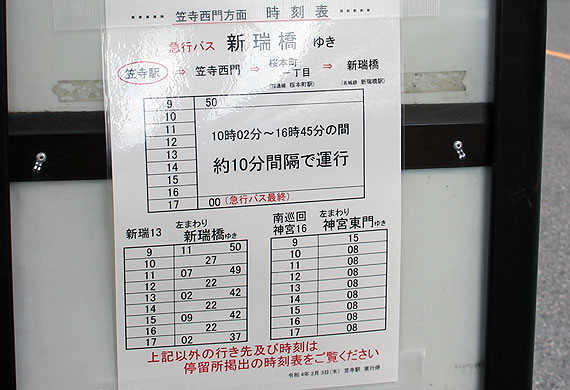 ••••• 笠寺西門方面 時刻表 •••••
急行バス 新瑞橋 ゆき
笠寺駅 ⇒ 笠寺西門 ⇒ 桜本町一丁目 ⇒ 新瑞橋
(桜通線 桜本町駅) (名城線 新瑞橋駅)
9 50
10
11 10時02分～16時45分の間
12
13
14 約10分間隔で運行
15
16
17 00 (急行バス最終)
新瑞13 左まわり 新瑞橋ゆき
9 11 50
10 27
11 07 49
12 22
13 02 42
14 22
15 09 42
16 22
17 02 37
南巡回 神宮16 左まわり 神宮東門ゆき
9 15
10 08
11 08
12 08
13 08
14 08
15 08
16 08
17 08
上記以外の行き先及び時刻は
停留所掲出の時刻表をご覧ください
令和 4年 2月 3日(木) 笠寺駅 東行停